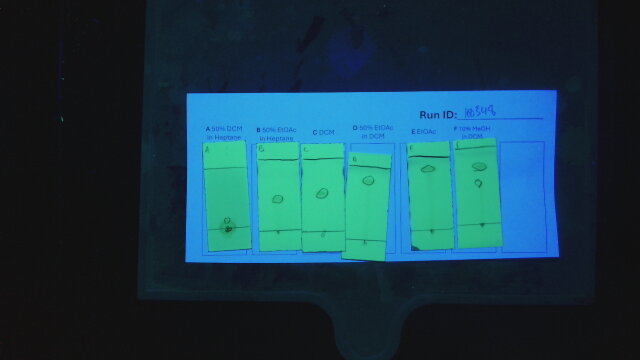 Run ID: 100348
A 50% DCM
in Heptane
B 50% EtOAc
in Heptane
C DCM
D 50% EtOAc
in DCM
E EtOAc
F 10% MeOH
in DCM
A
B
C
E